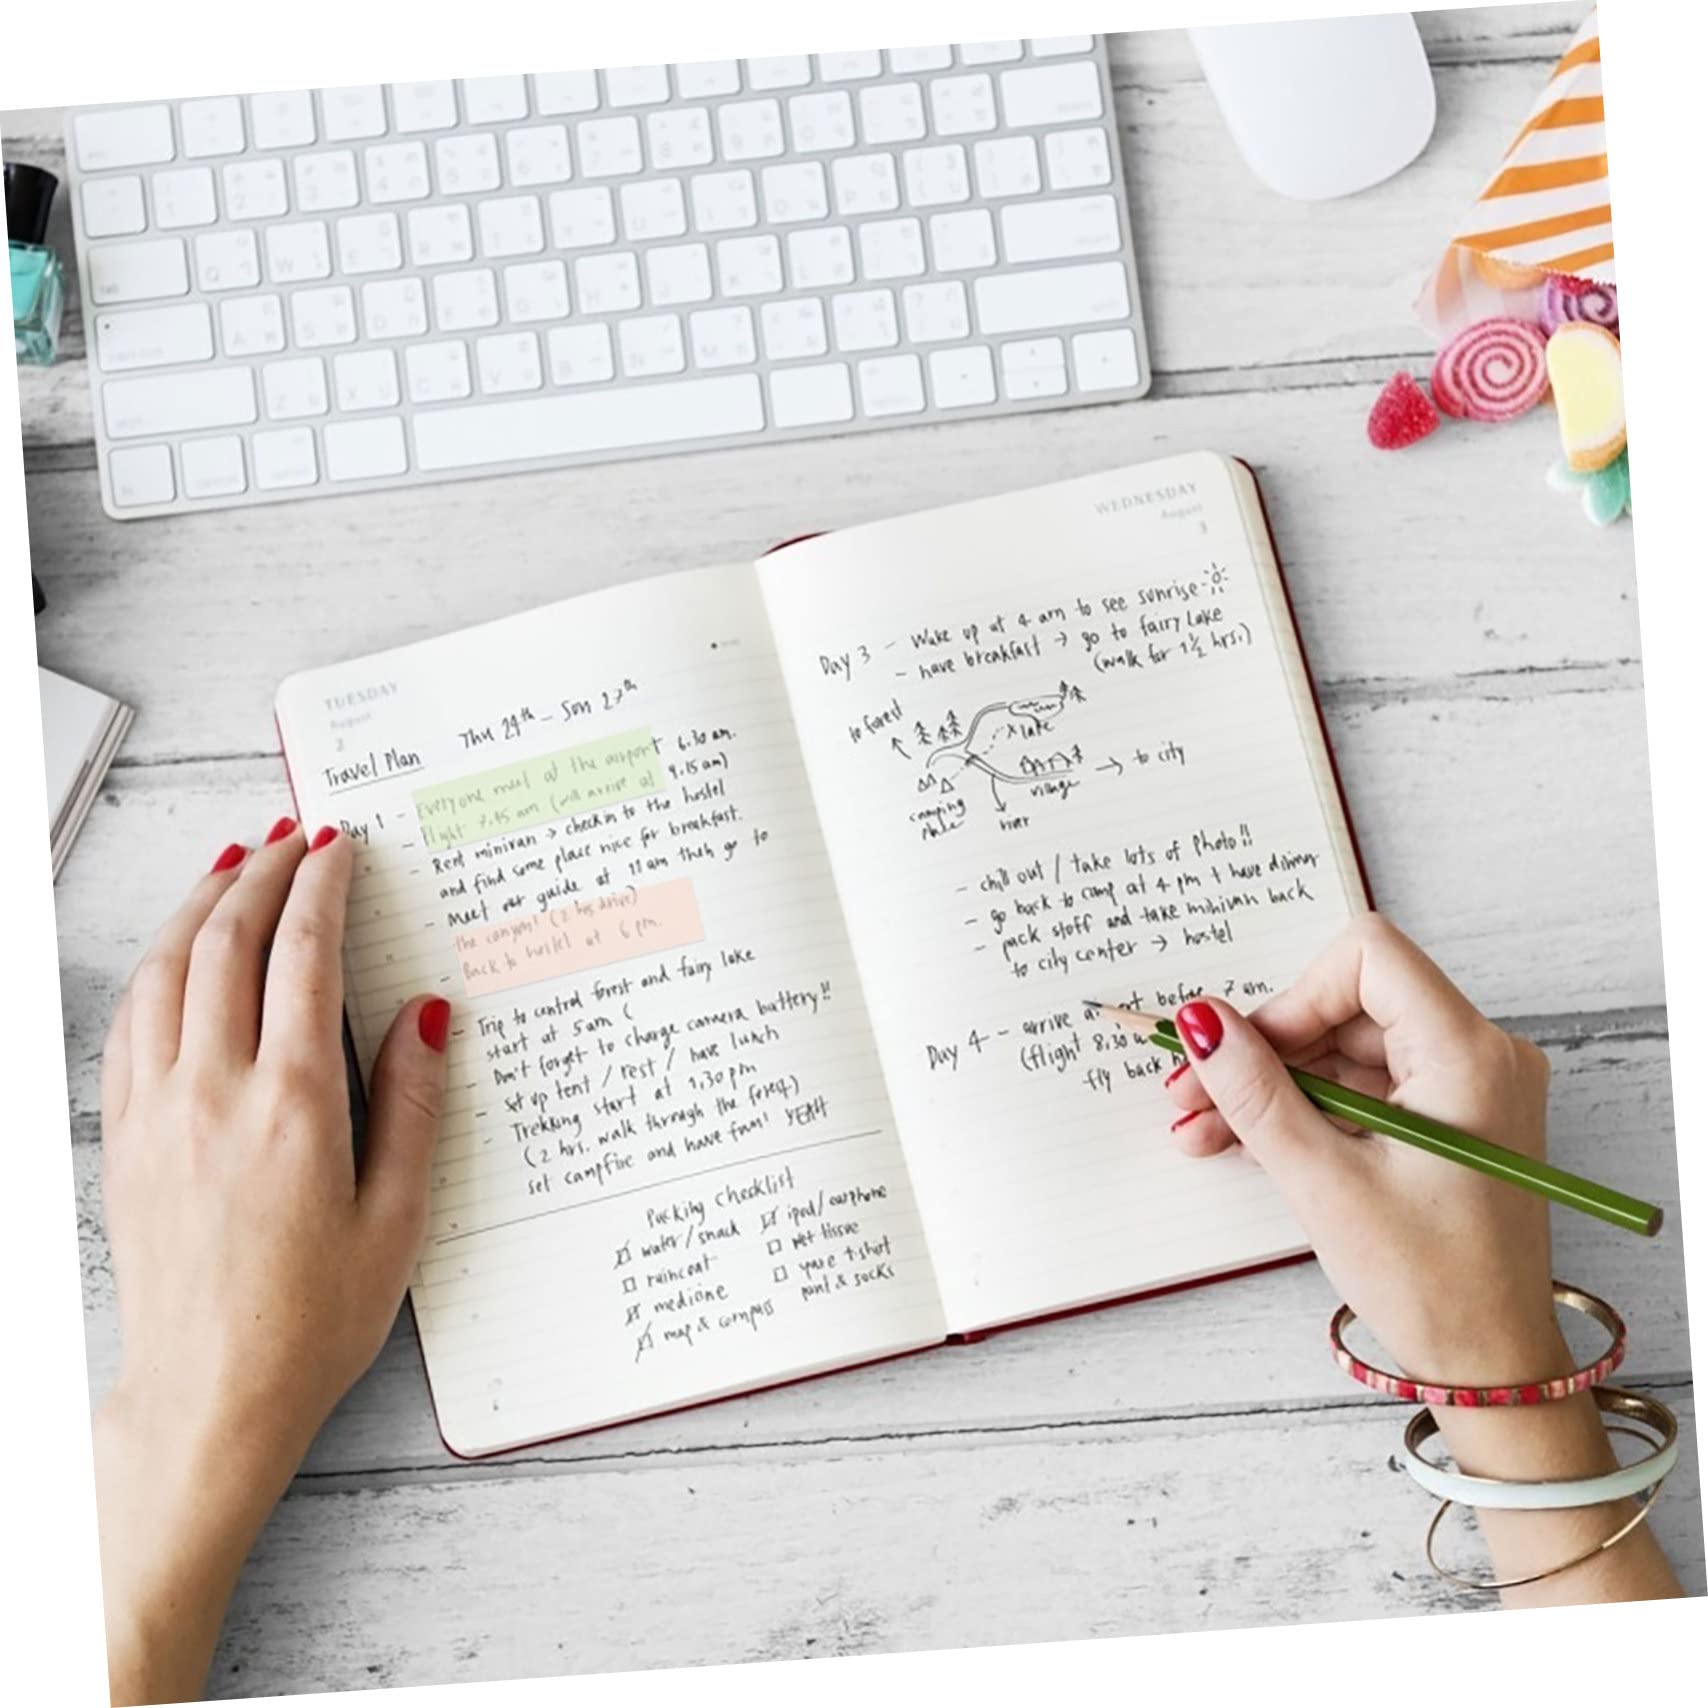 TUESDAY
August
2
Travel Plan
Thu 24th - Sun 27th
Day 1 - Everyone meet at the airport 6.30 am.
- Flight 7.45 am (will arrive at 9.15 am)
- Rent minivan → checkin to the hostel
and find some place nice for breakfast.
- Meet our guide at 11 am then go to
the canyon! (2 hrs drive)
- Back to hostel at 6 pm.
- Trip to central forest and fairy lake
start at 5 am (
- Don't forget to charge camera battery!!
- Set up tent / rest / have lunch
- Trekking start at 1,30 pm
(2 hrs. walk through the forest)
set campfire and have fun! YEAH
Packing Checklist
water/snack
raincoat
medicine
map & compass
ipod/earphone
wet tissue
spare t-shirt
pant & socks
WEDNESDAY
August
3
Day 3 - Wake up at 4 am to see sunrise
- have breakfast → go to fairy Lake
(walk for 1½ hrs.)
to forest
lake
to city
village
camping
place
river
- chill out / take lots of photo!!
- go back to camp at 4 pm + have dinner
- pack stuff and take minivan back
to city center → hostel
Day 4 - arrive before 7 am.
(flight 8,30
fly back
tab